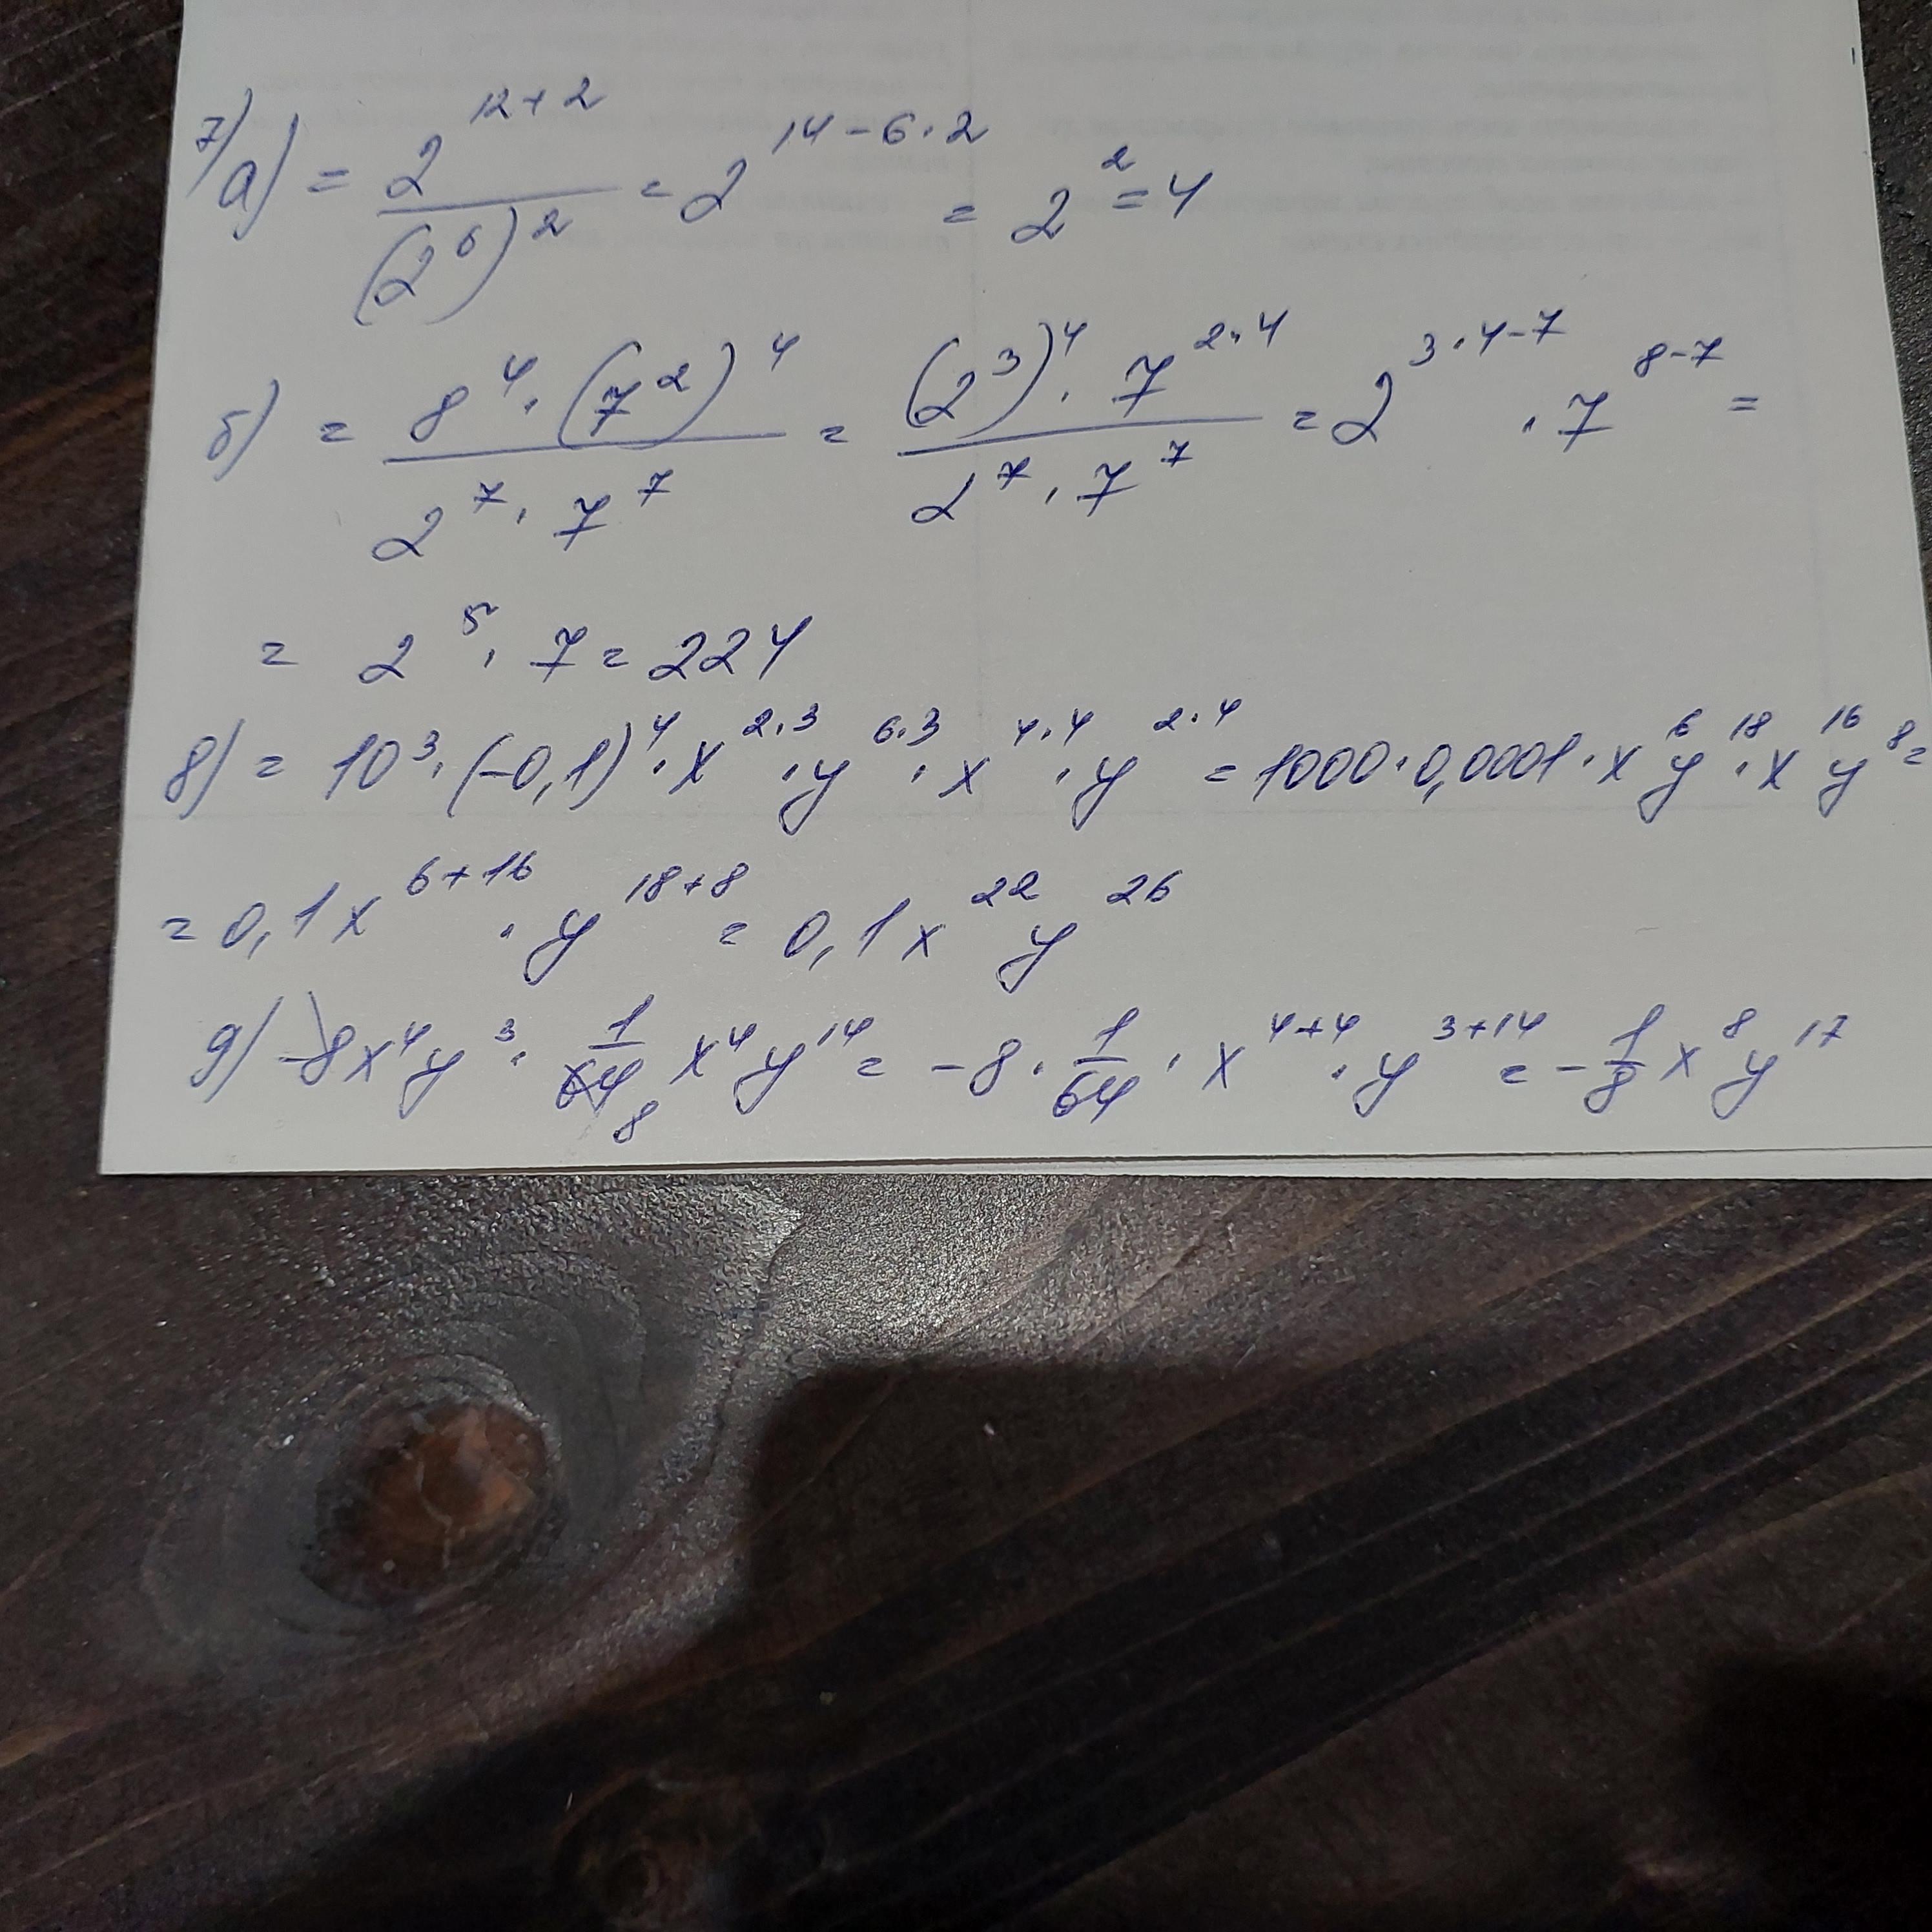 7) а) = 2^{12+2} / (2^6)^2 = 2^{14-6·2} = 2^2 = 4
б) = 8^4 · (7^2)^4 / 2^7 · 7^7 = (2^3)^4 · 7^{2·4} / 2^7 · 7^7 = 2^{3·4-7} · 7^{8-7} =
= 2^5 · 7 = 224
8) = 10^3 · (-0,1)^4 · x^{2·3} · y^{6·3} · x^{4·4} · y^{2·4} = 1000 · 0,0001 · x^6 y^{18} · x^{16} y^8 =
= 0,1x^{6+16} · y^{18+8} = 0,1x^{22} y^{26}
9) -8x^4 y^3 · 1/64 8 x^4 y^{14} = -8 · 1/64 · x^{4+4} · y^{3+14} = -1/8 x^8 y^{17}